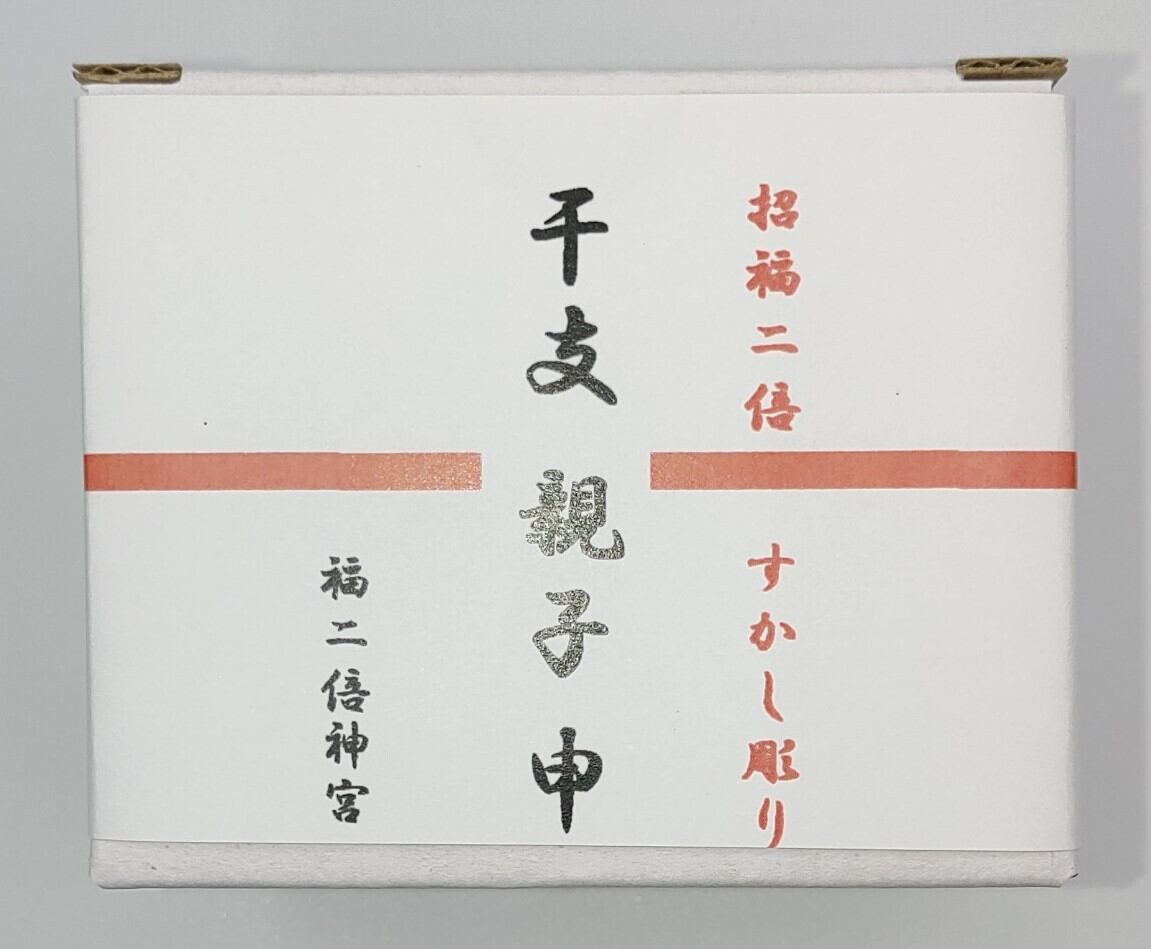 招福二倍 すかし彫り
干支 親子 申
福二倍神宮